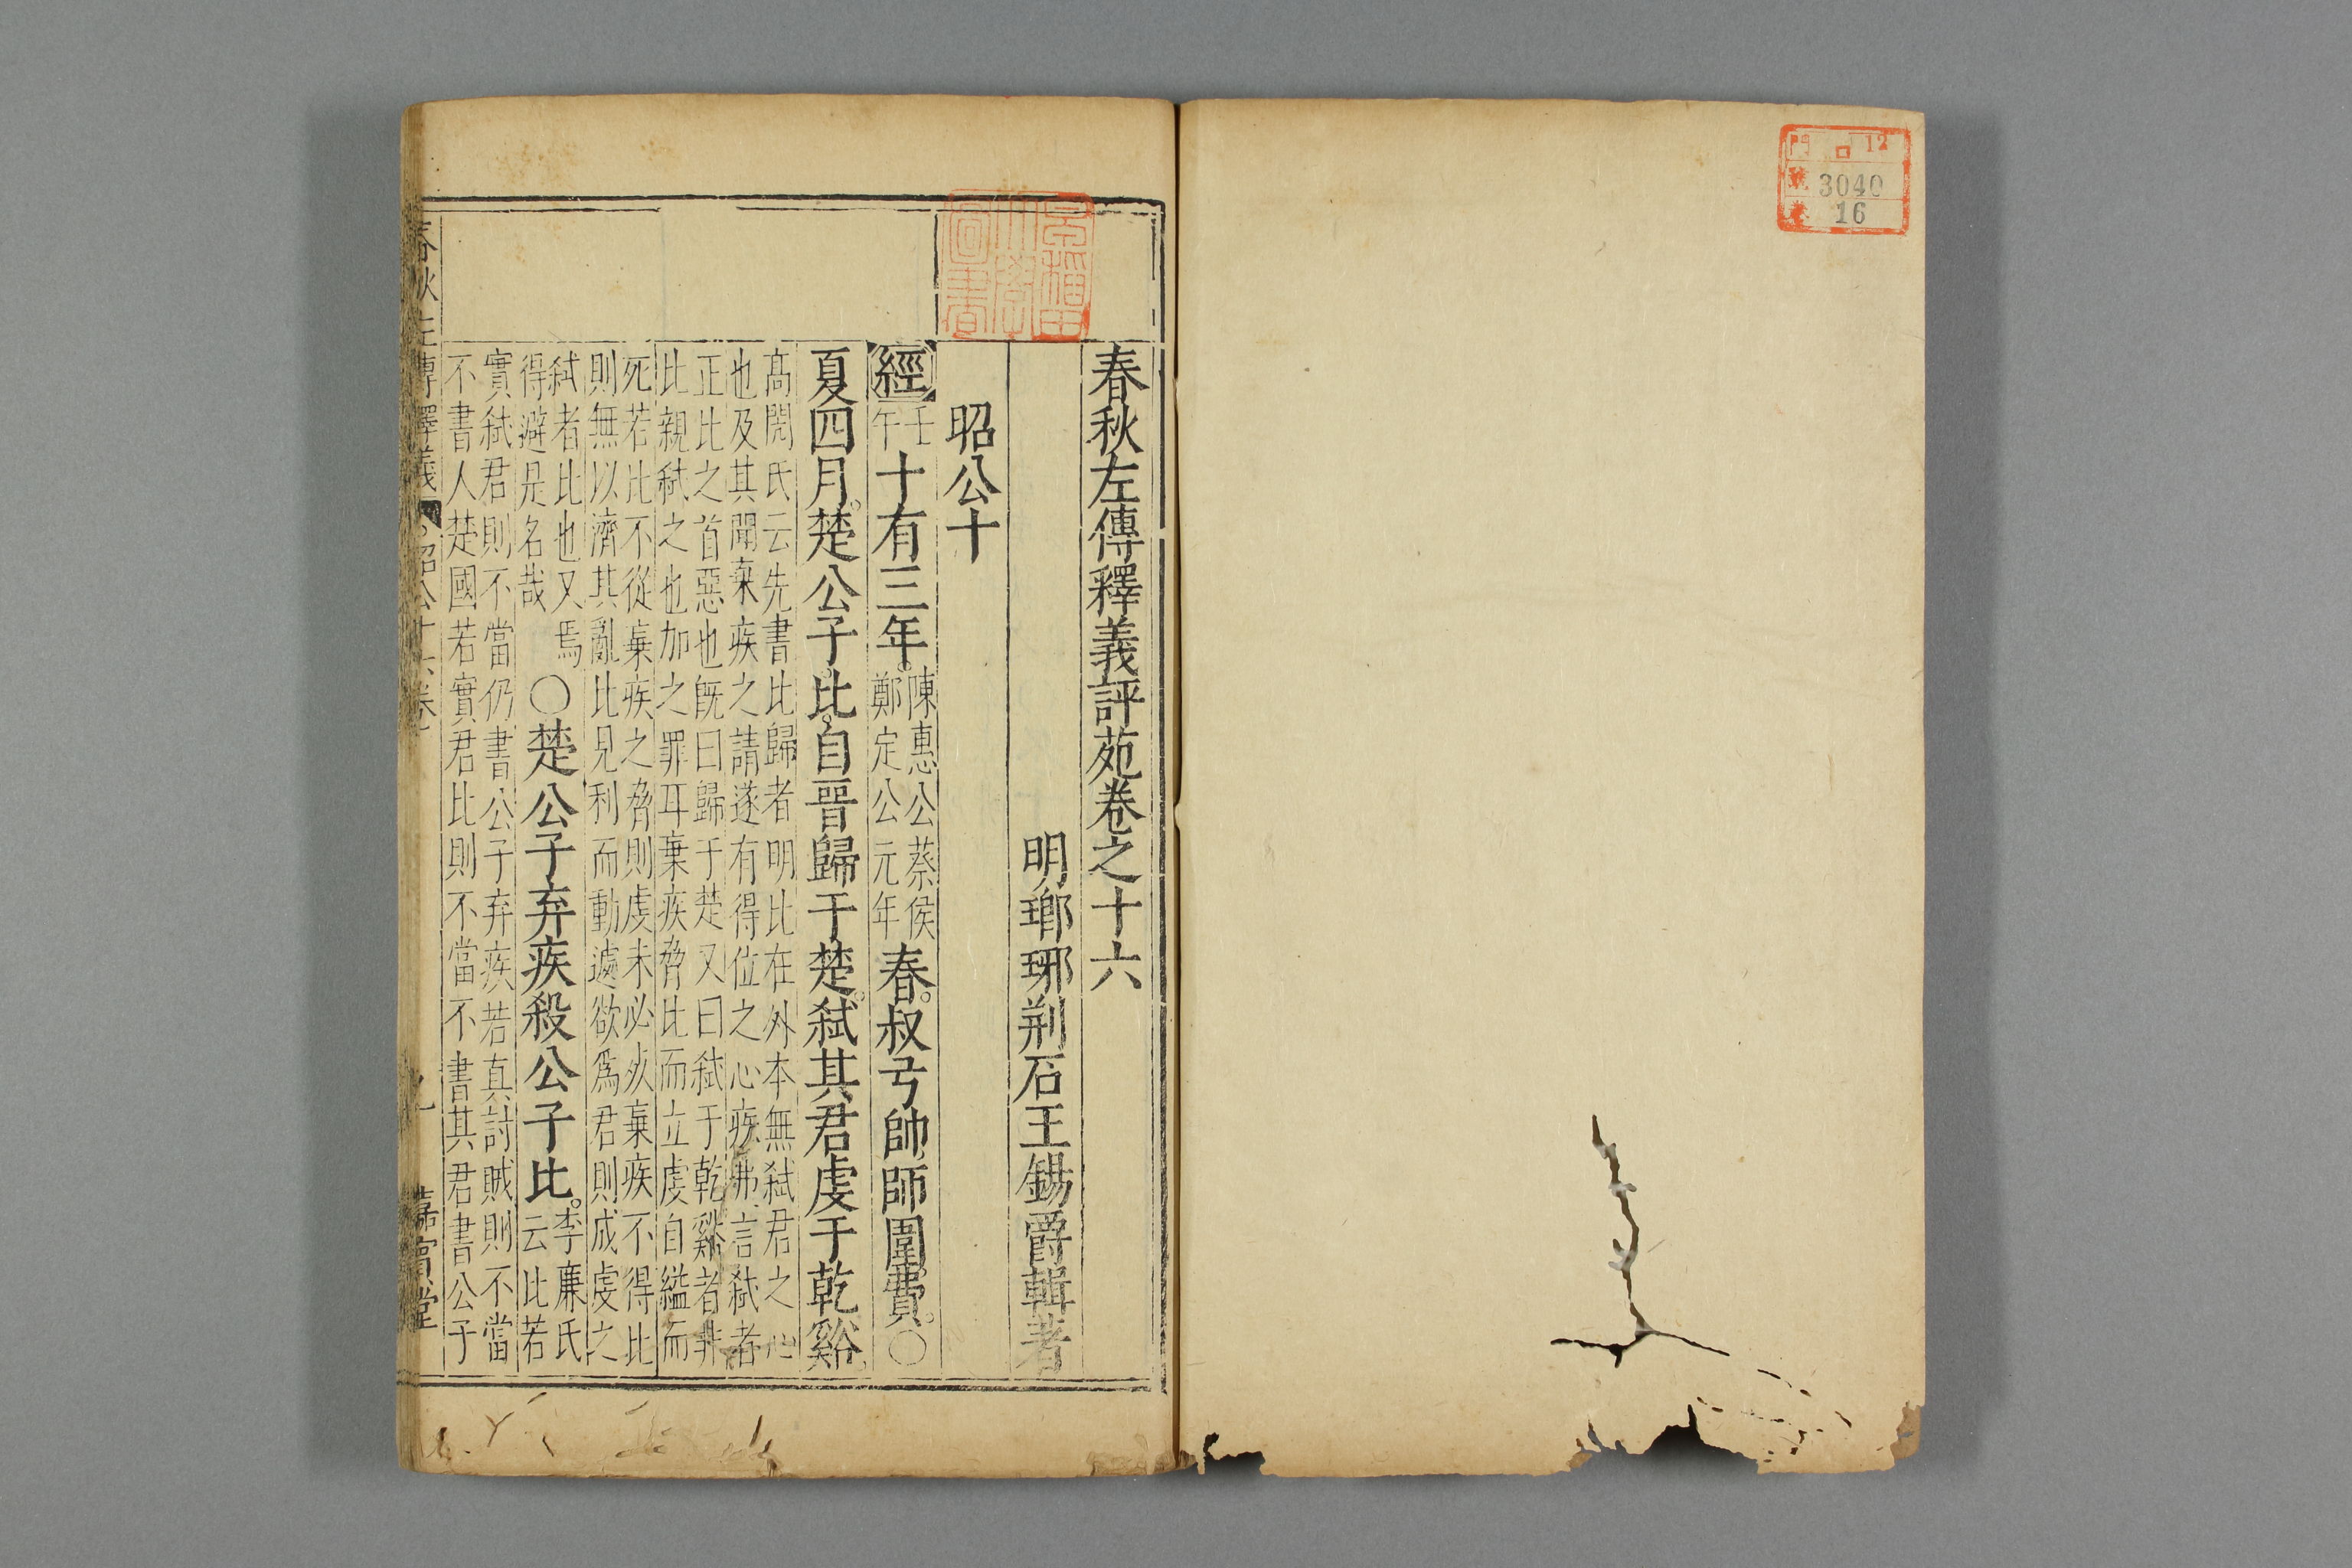 門 口 12
號 3040
卷 16
早稲田
大學
圖書
春秋左傳釋義評苑卷之十六
明瑯琊荆石王錫爵輯著
昭公十
經 壬午 十有三年。陳惠公蔡侯鄭定公元年 春。叔弓帥師圍費。〇
夏四月。楚公子比。自晉歸于楚。弒其君虔于乾谿。
高閌氏云先書比歸者明比在外本無弒君之心
也及其聞棄疾之請遂有得位之心 言弒者
正比之首惡也既曰歸于楚又曰弒于乾谿者非
比親弒之也加之罪耳棄疾脅比而立虔自縊而
死若比不從棄疾之脅則虔未必死棄疾不得比
則無以濟其亂比見利而動遽欲爲君則成虔之
弒者比也又焉
得避是名哉
〇楚公子弃疾殺公子比。李廉氏
云比若
實弒君則不當仍書公子弃疾若真討賊則不當
不書人楚國若實君比則不當不書其君書公子
春秋左傳釋義 昭公十六卷 一 嘉賓堂